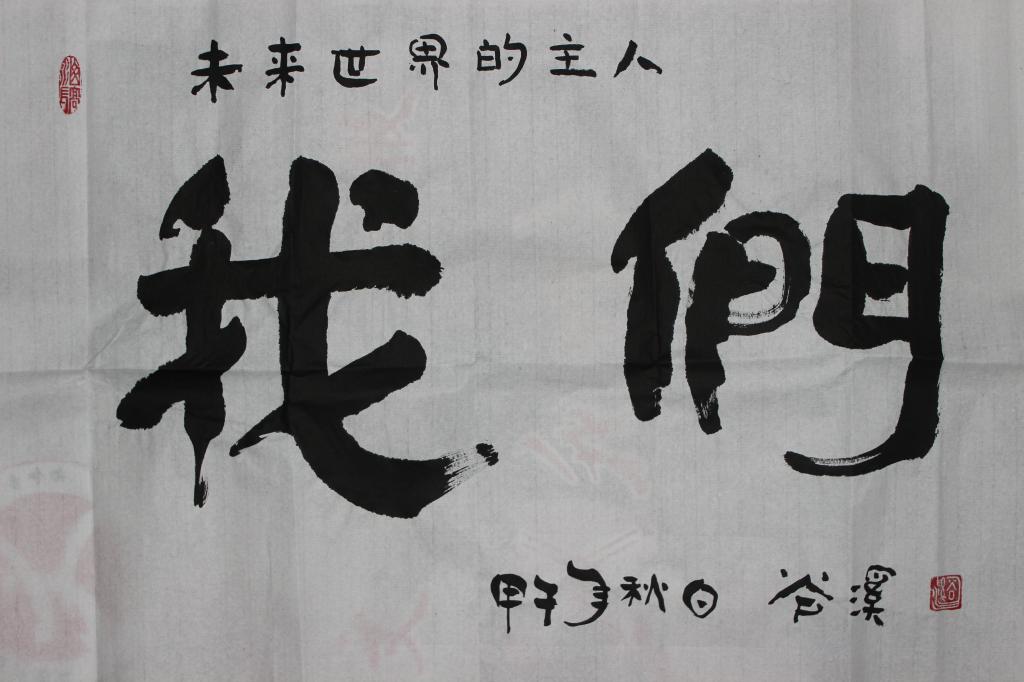 未来世界的主人
我們
甲午年秋日 谷溪